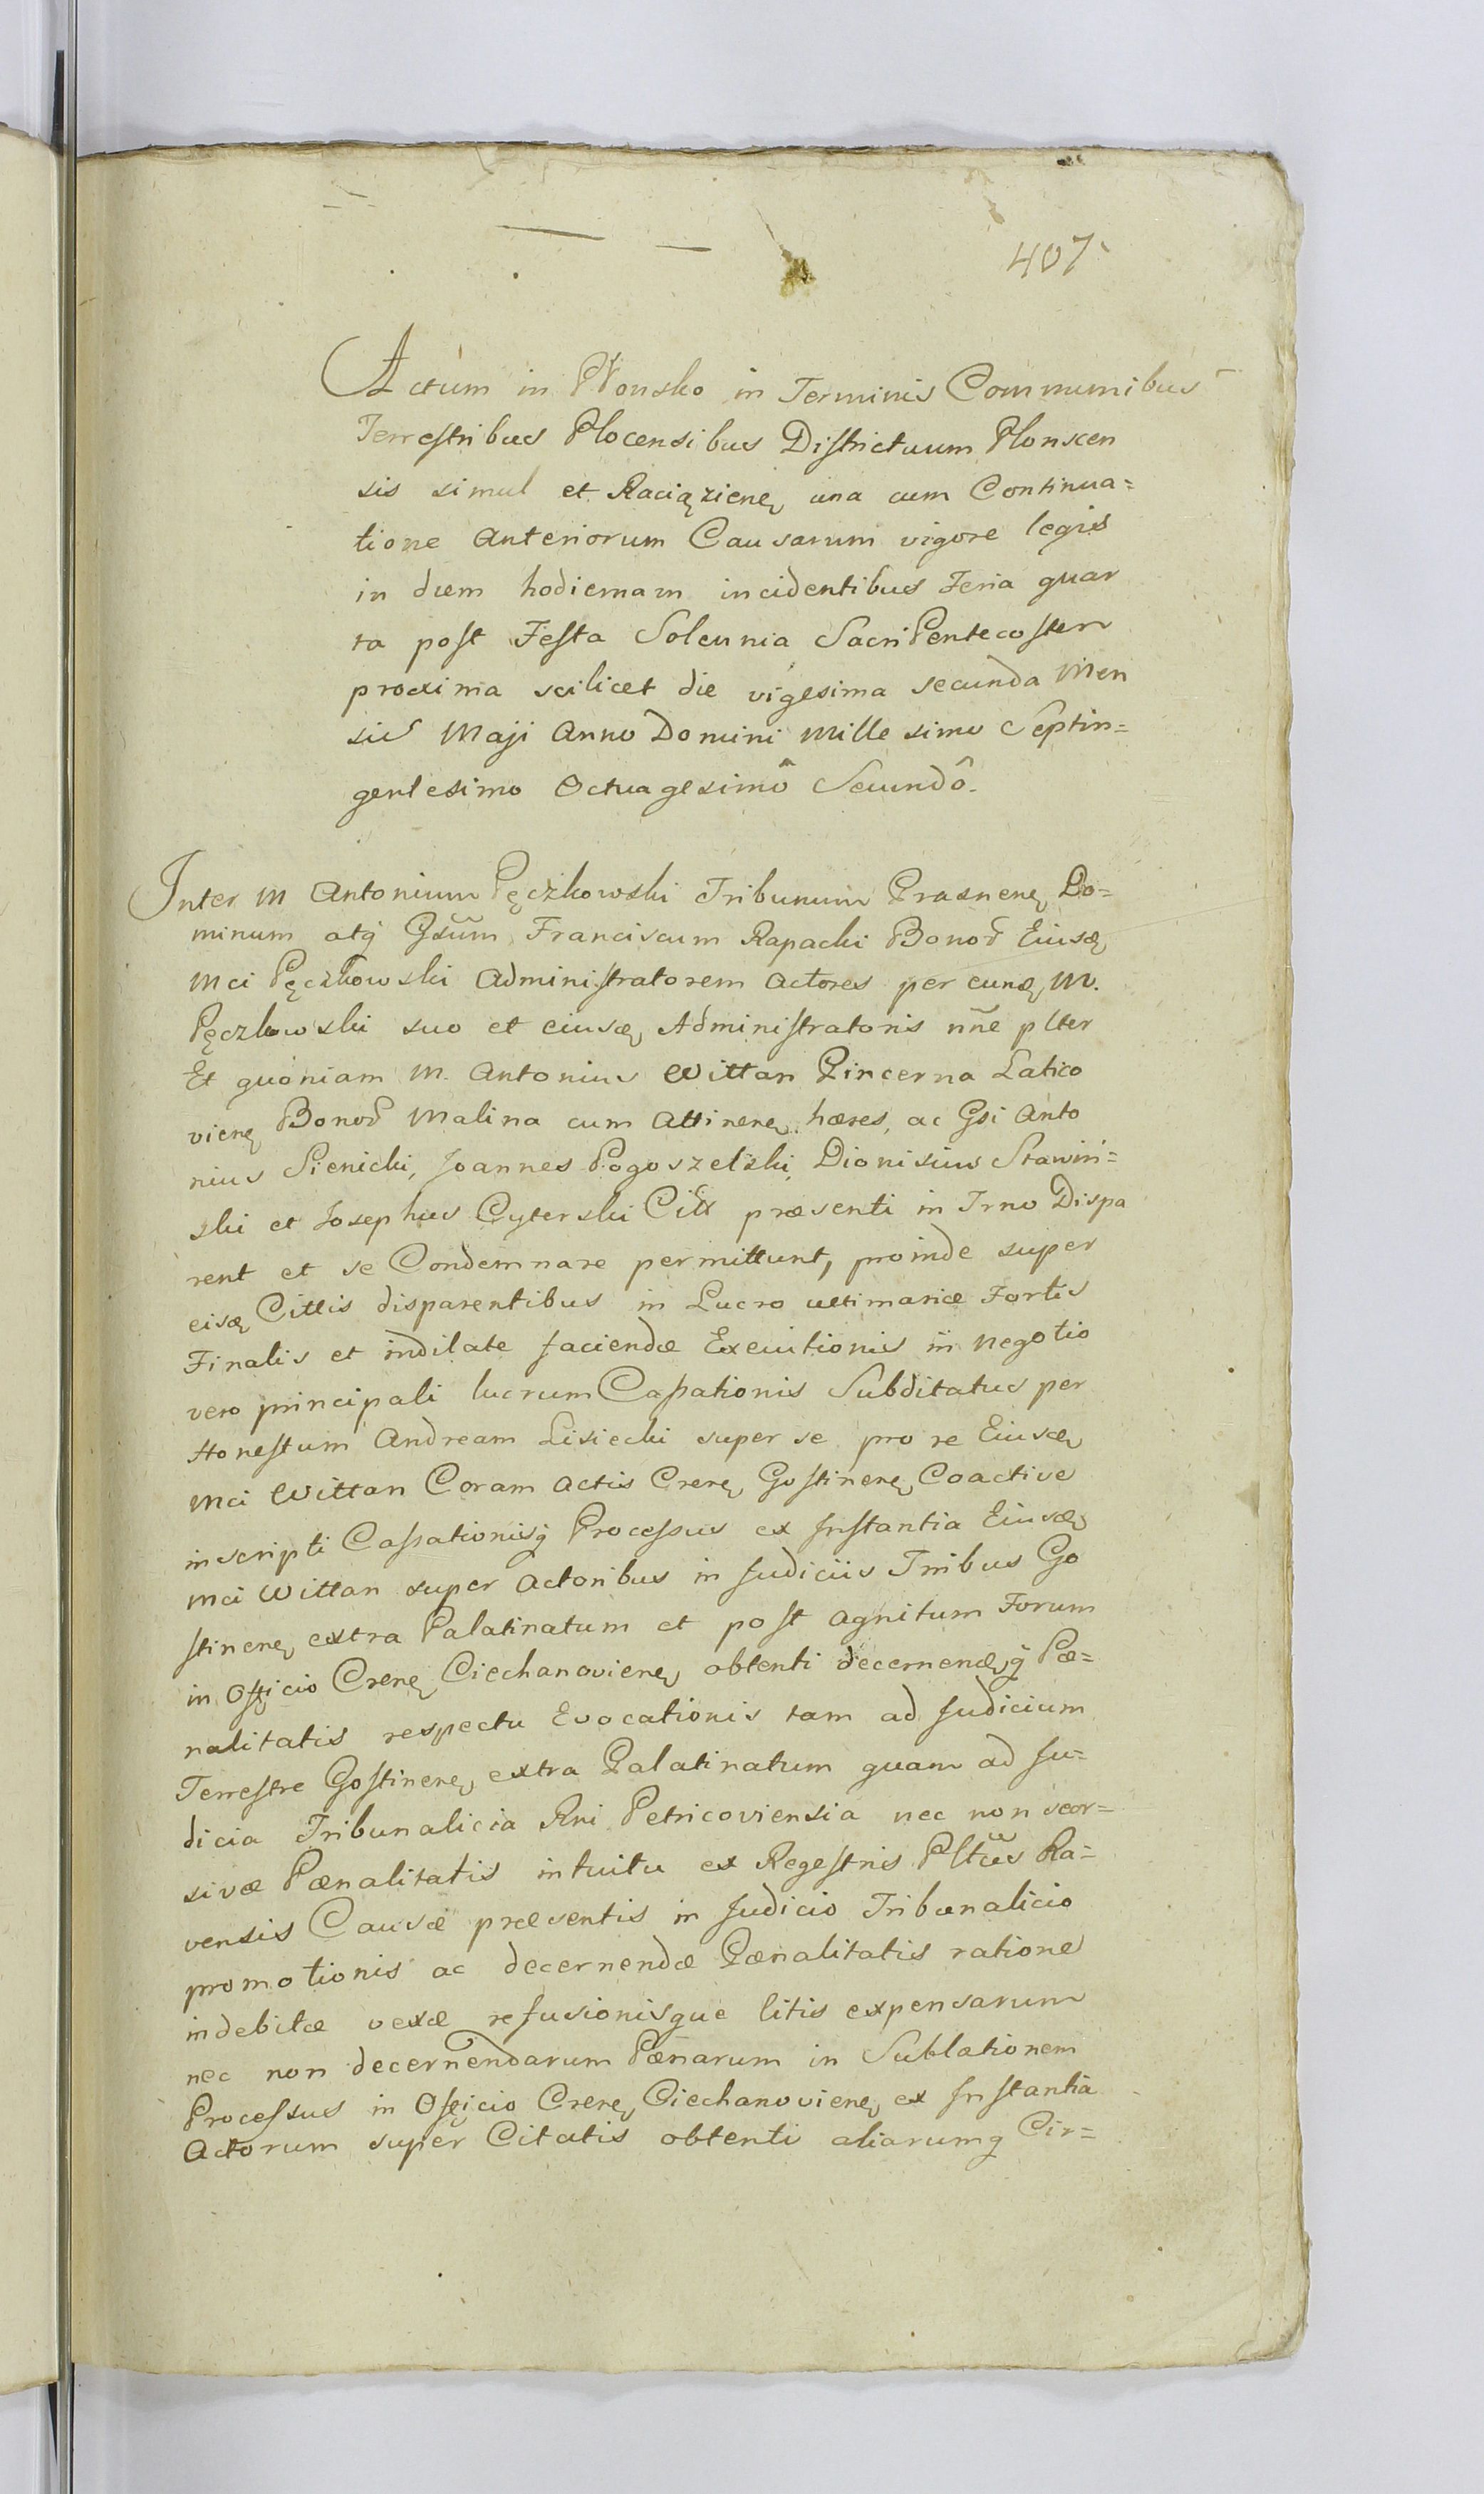 407
Actum in Płonsko in Terminis Communibus
Terrestribus Plocensibus Districtuum Plonscen
sis simul et Raciązienę una cum Continua=
tione Anteriorum Causarum vigore legis
in diem hodiernam incidentibus Feria quar
ta post Festa Solennia Sacri Pentecosten
proxima scilicet die vigesima secunda Men
sis Maji Anno Domini Millesimo Septin=
gentesimo Octuagesimô Secundô.
Inter M Antonium Pęczkowski Tribunum Prasnenę Do=
minum atq Gsum Franciscum Rapacki Bonor Eiusdę
Mci Pęczkowski Administratorem Actores per eundę M.
Pęczkowski suo et eiusdę Administratoris nñe plter
Et quoniam M. Antonius Wittan Pincerna Latico
vienę Bonor Malina cum Attinenę hæres, ac Gsi Anto
nius Sienicki, Joannes Pogoszelski, Dionisius Stawiń=
ski et Josephus Cyterski Citt præsenti in Trno Dispa
rent et se Condemnare permittunt, proinde super
eisdę Cittis disparentibus in Lucro ultimariæ Fortis
Finalis et indilate faciendæ Executionis in negotio
vero principali lucrum Cassationis Subditatus per
Honestum Andream Lisiecki super se pro re Eiusdę
Mci Wittan Coram Actis Crenę Gostinenę Coactive
inscripti Cassationisq Processus ex Instantia Eiusdę
Mci Wittan super Actoribus in Judiciis Tribus Go
stinenę extra Palatinatum et post agnitum Forum
in Officio Crenę Ciechanovienę obtenti decernendęq Pæ=
nalitatis respectu Evocationis tam ad Judicium
Terrestre Gostinenę extra Palatinatum quam ad Ju=
dicia Tribunalicia Rni Petricoviensia nec non seor=
sivæ Pænalitatis intuitu ex Regestris Pltus Ra=
vensis Causæ præsentis in Judicio Tribunalicio
promotionis ac decernendæ Pænalitatis ratione
indebitæ vexæ refusionisque litis expensarum
nec non decernendarum Pænarum in Sublationem
Processus in Officio Crenę Ciechanovienę ex Instantia
Actorum super Citatis obtenti aliarumq Cir=